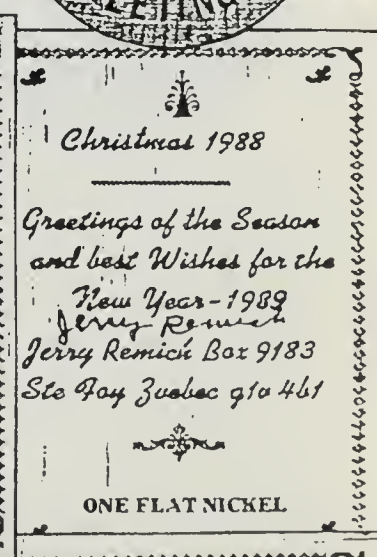 Christmas 1988
Greetings of the Season
and best Wishes for the
New Year-1989
Jerry Remick
Jerry Remick Box 9183
Ste Foy Quebec g1v 4b1
ONE FLAT NICKEL